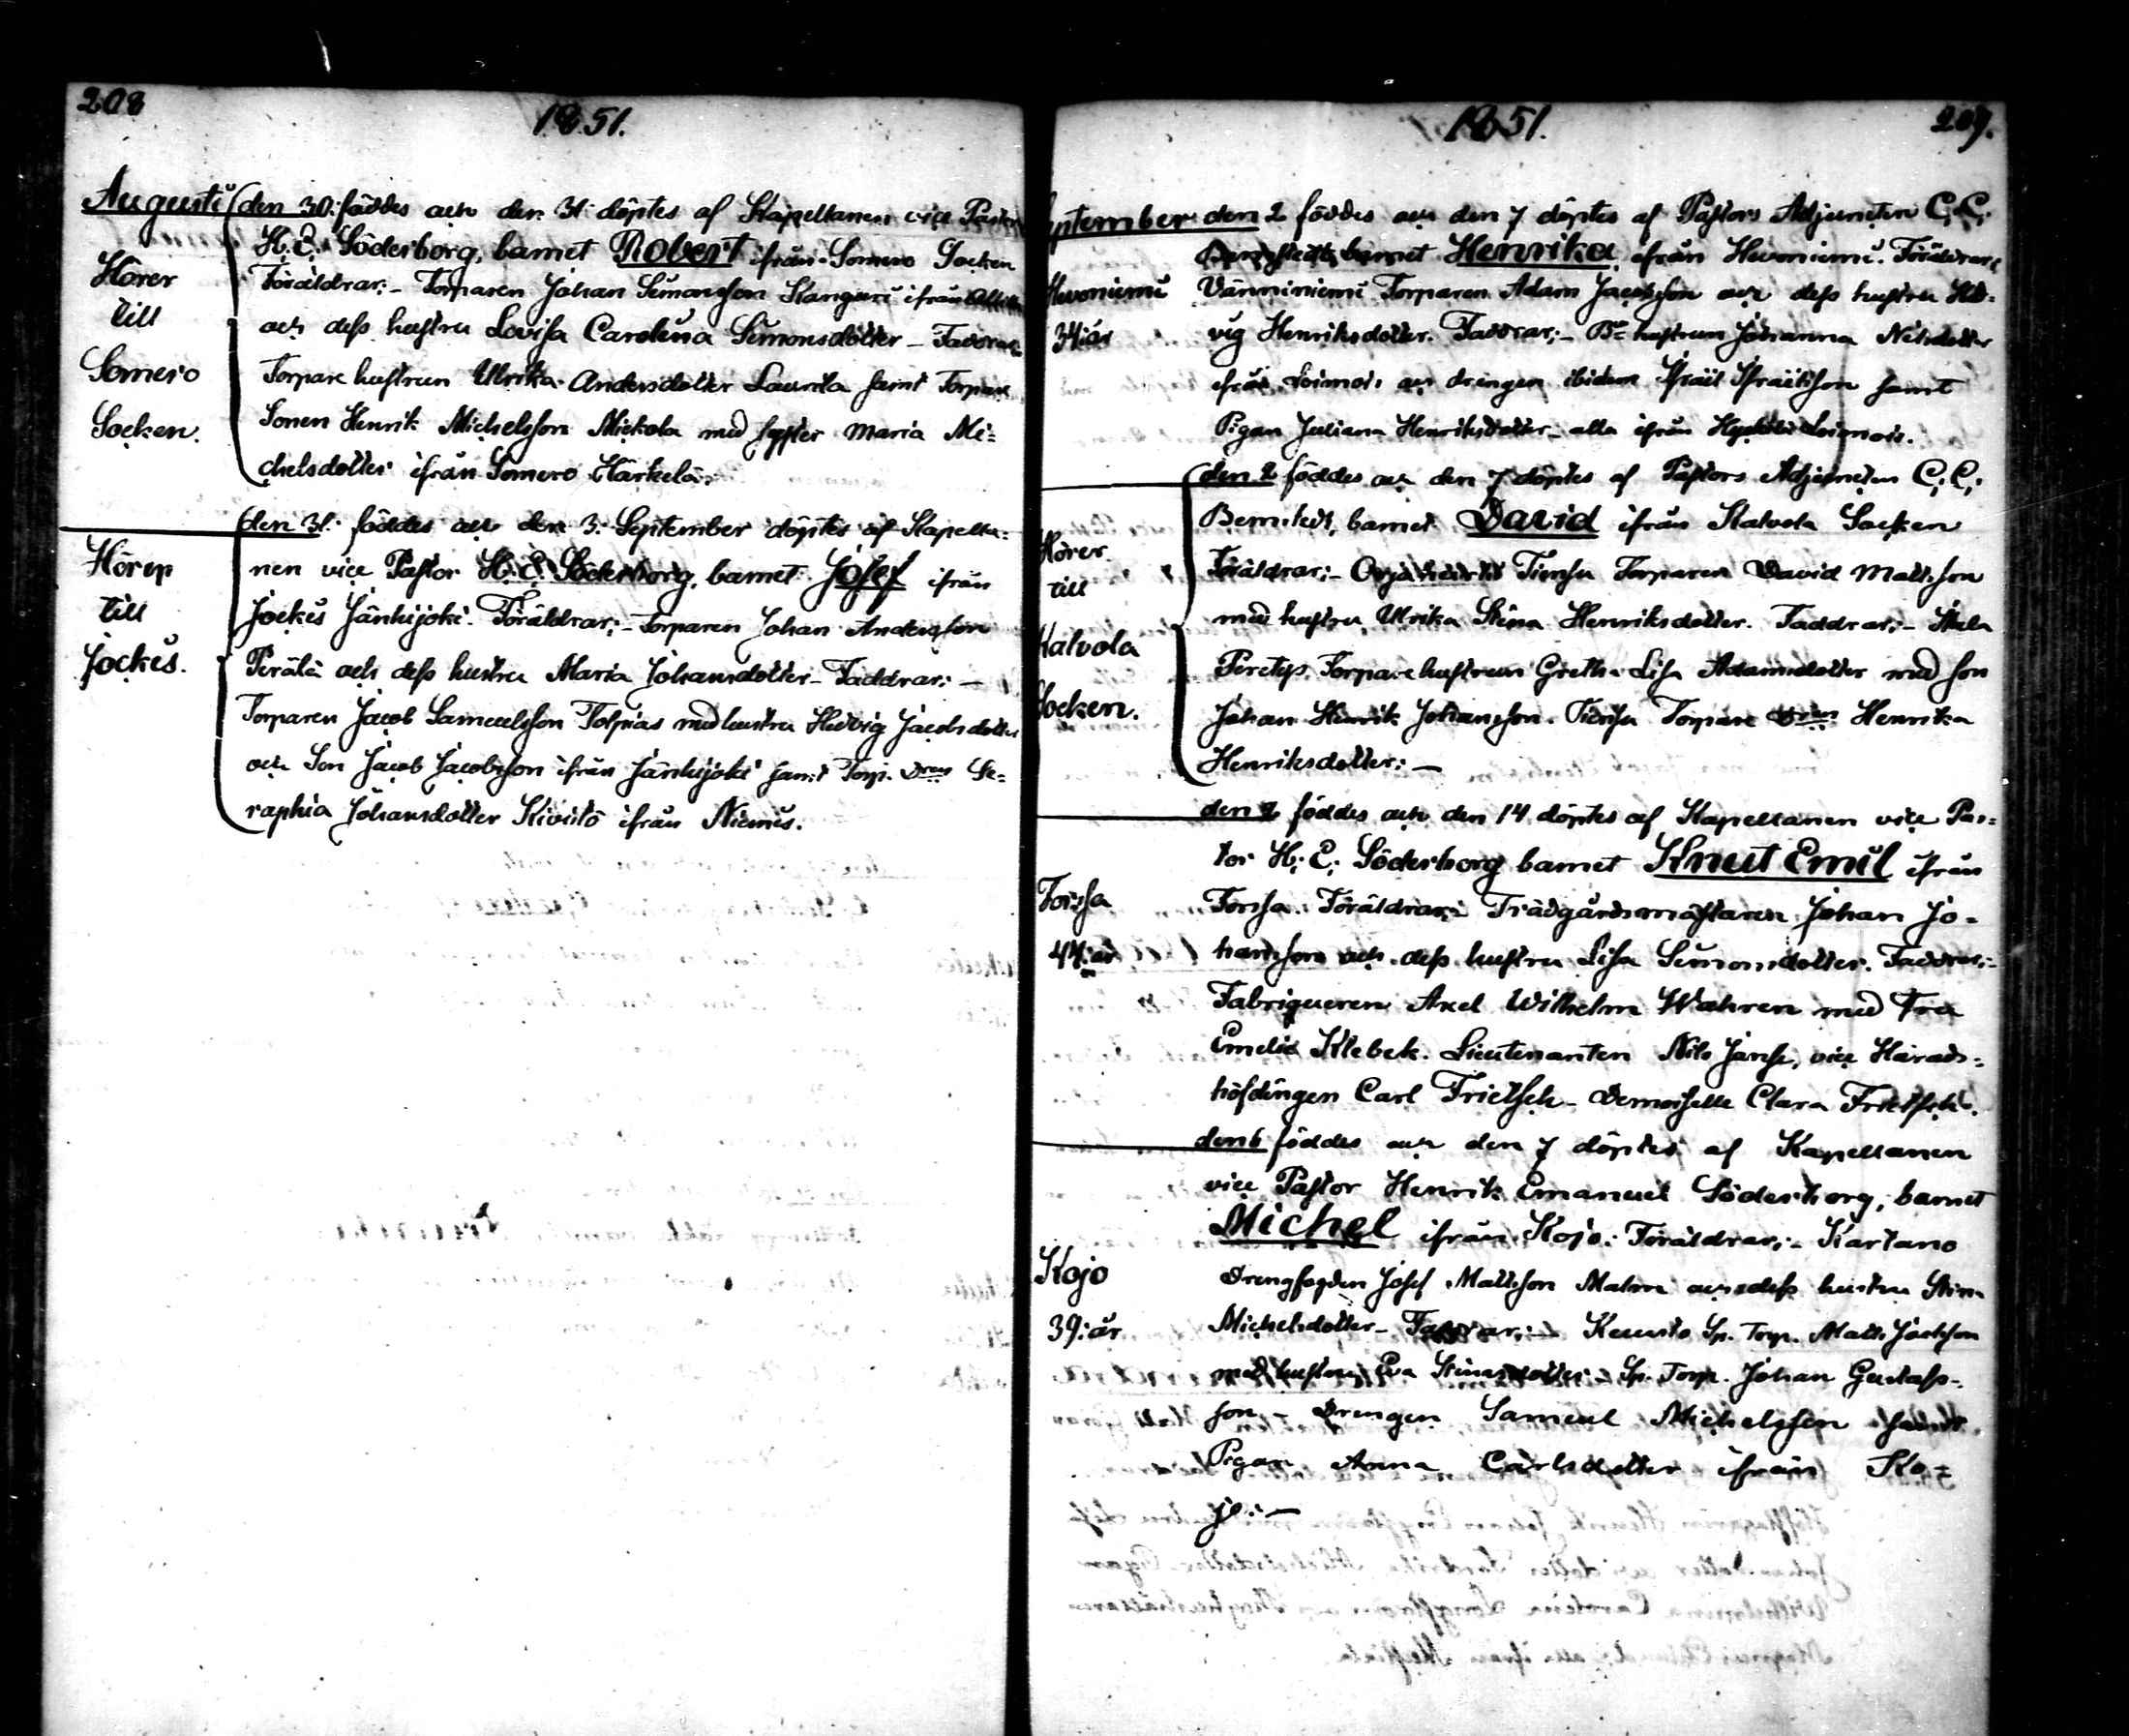 208
1851.
Augusti den 30: föddes och den 31: döptes af Kapellanen vice Pastor
H. E. Söderborg, barnet Robert ifrån Somero Socken
Föräldrar;- Torparen Johan Simonsson Kanguri ifrån
och dess hustru Lovisa Carolina Simonsdotter - Faddrar
Torpare hustrun Ulrika Andersdotter Laurila samt Torpare
Sonen Henrik Michelsson Mickola med syster Maria Mi=
chelsdotter ifrån Somero Härkelä:
Hörer
till
Somero
Socken.
den 31: föddes och den 3: September döptes af Kapella=
nen vice Pastor H. E. Söderborg, barnet Josef ifrån
Jockis Jänhijoki. Föräldrar;- Torparen Johan Andersson
Perälä och dess hustru Maria Johansdotter - Faddrar: -
Torparen Jacob Samuelsson Tolpias med hustru Hedvig Jacobsdotter
och Son Jacob Jacobsson ifrån Jänhijoki samt Torp. Dren Se=
raphia Johansdotter Kivistö ifrån Niemis.
Hörer
till
Jockis.
1851.
209.
September den 2 föddes och den 7 döptes af Pastors Adjuncten C. C.
barnet Henrika ifrån Hevoniemi. Föräldrar
Vänniniemi Torparen Adam Jacobsson och dess hustru Hed=
vig Henriksdotter. Faddrar;- Bde hustrun Johanna Nilsdotter
ifrån Loimois och drengen ibidem Israel Israelsson samt
Pigan Juliana Henriksdotter - alla ifrån Loimois.
Hevoniemi
34: år
den 2 föddes och den 7 döptes af Pastors Adjuncten C. C.
Bernstedt, barnet David ifrån Kalvola Socken
Föräldrar;- Tiensu Torparen David Mattsson
med hustru Ulrika Stina Henriksdotter. Faddrar;-
Torpare hustrun Greth. Lisa Adamsdotter med son
Johan Henrik Johansson. Tiensu Torpare Dren Henrika
Henriksdotter: -
Hörer
till
Kalvola
Socken.
den 2 föddes och den 14 döptes af Kapellanen vice Pas=
tor H. E. Söderborg barnet Knut Emil ifrån
Forssa. Föräldrar; Trädgårdsmästaren Johan Jo=
hansson och dess hustru Lisa Simonsdotter. Faddrar;-
Fabriqueren Axel Wilhelm Wahren med Fru
Emelie Klebek. Lieutenanten Nils Jansse, vice Härads=
höfdingen Carl Frietsch - Demoiselle Clara Frietsch.
Forssa
44: år
den 6 föddes och den 7 döptes af Kapellanen
vice Pastor Henrik Emanuel Söderborg, barnet
Michel ifrån Kojo: Föräldrar;- Kartano
Drengfogden Josef Mattsson Malm och dess hustru Stina
Michelsdotter - Faddrar;- Kunsto Sp. Torp. Matts Jacobsson
med hustru Eva Stinasdotter - Sp. Torp. Johan Gustafs-
son - Drengen Samuel Michelsson samt
Pigan Anna Carlsdotter ifrån Ko=
jo: -
Kojo
39: år